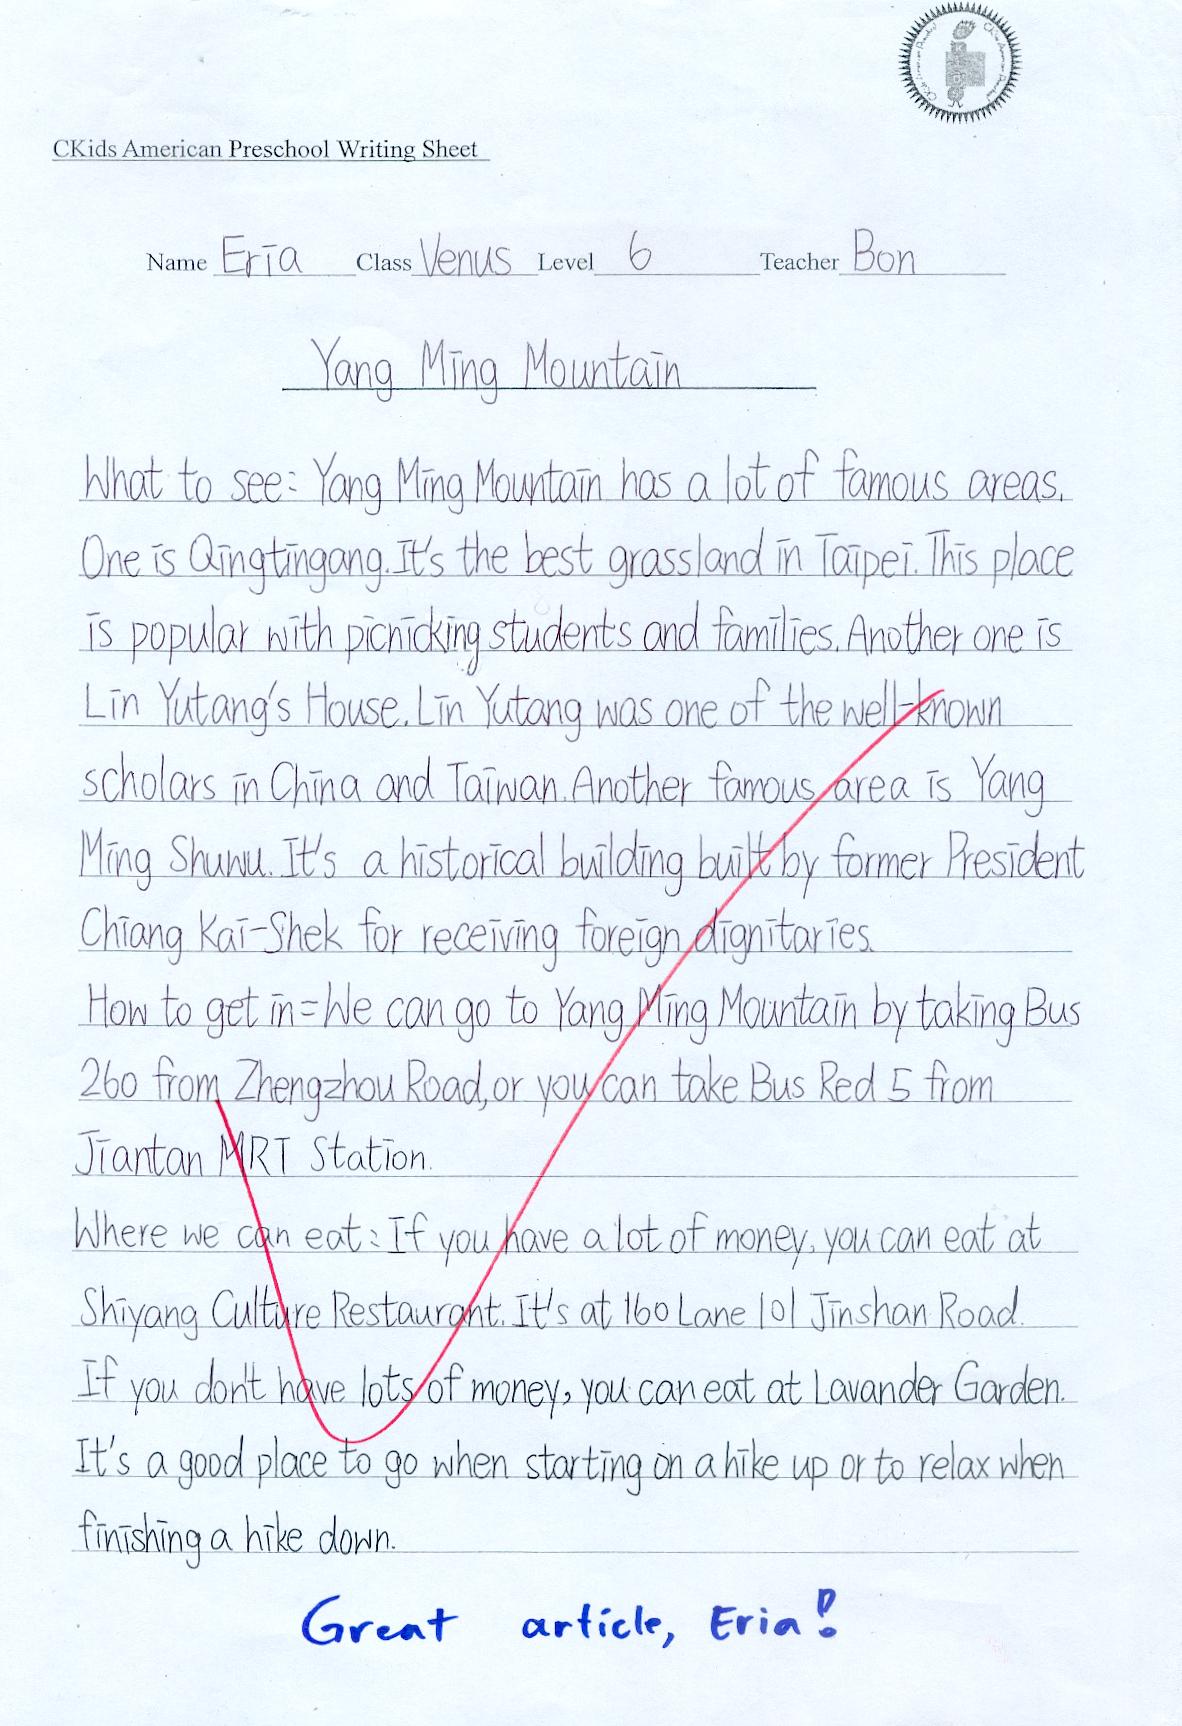 CKids American Preschool Writing Sheet
Name Eria Class Venus Level 6 Teacher Bon
Yang Ming Mountain
What to see: Yang Ming Mountain has a lot of famous areas.
One is Qingtingang. It's the best grassland in Taipei. This place
is popular with picnicking students and families. Another one is
Lin Yutang's House. Lin Yutang was one of the well-known
scholars in China and Taiwan. Another famous area is Yang
Ming Shuwu. It's a historical building built by former President
Chiang Kai-Shek for receiving foreign dignitaries.
How to get in: We can go to Yang Ming Mountain by taking Bus
260 from Zhengzhou Road, or you can take Bus Red 5 from
Jiantan MRT Station.
Where we can eat: If you have a lot of money, you can eat at
Shiyang Culture Restaurant. It's at 160 Lane 101 Jinshan Road.
If you don't have lots of money, you can eat at Lavander Garden.
It's a good place to go when starting on a hike up or to relax when
finishing a hike down.
Great article, Eria!